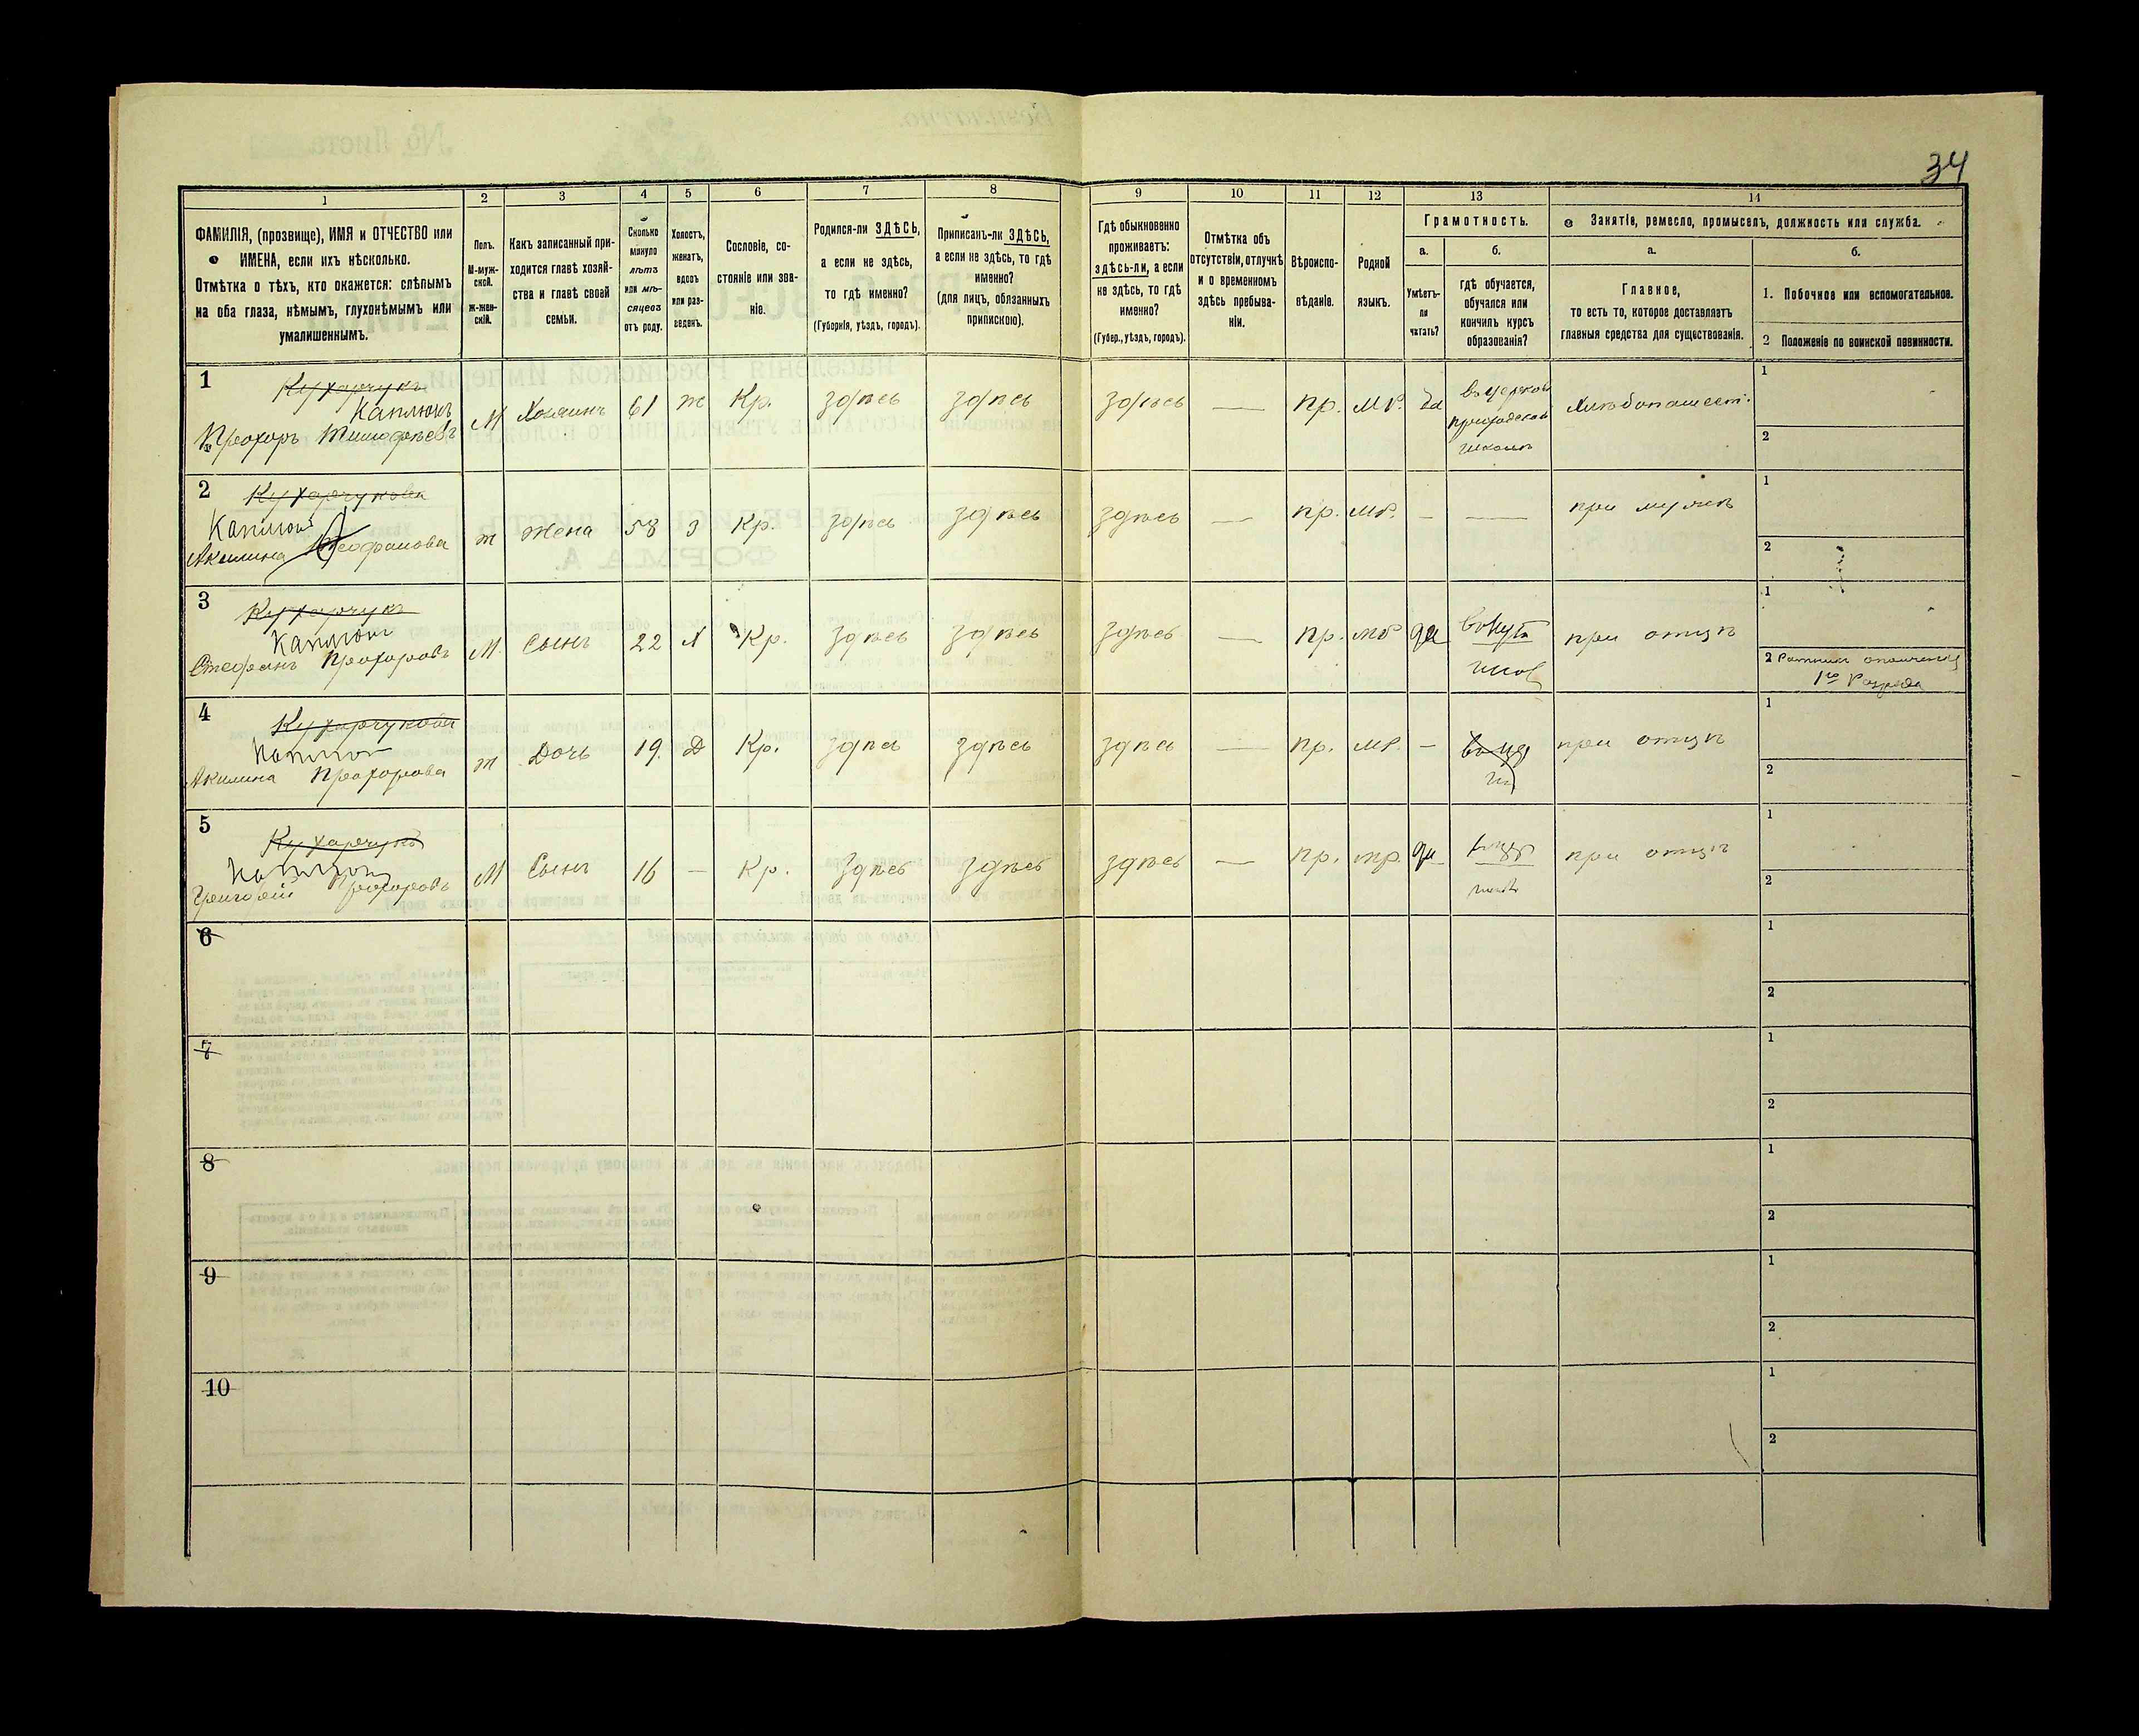 34
1 2 3 4 5 6 7 8 9 10 11 12 13 14
ФАМИЛІЯ, (прозвище), ИМЯ и ОТЧЕСТВО или
ИМЕНА, если ихъ нѣсколько.
Отмѣтка о тѣхъ, кто окажется: слѣпымъ
на оба глаза, нѣмымъ, глухонѣмымъ или
умалишеннымъ.
Полъ.
М-муж-
ской.
ж-жен-
скій.
Какъ записанный при-
ходится главѣ хозяй-
ства и главѣ своей
семьи.
Сколько
минуло
лѣтъ
или мѣ-
сяцевъ
отъ роду.
Холостъ,
женатъ,
вдовъ
или раз-
веденъ.
Сословіе, со-
стояніе или зва-
ніе.
Родился-ли ЗДѢСЬ,
а если не здѣсь,
то гдѣ именно?
(Губернія, уѣздъ, городъ).
Приписанъ-ли ЗДѢСЬ,
а если не здѣсь, то гдѣ
именно?
(для лицъ, обязанныхъ
припискою).
Гдѣ обыкновенно
проживаетъ:
здѣсь-ли, а если
не здѣсь, то гдѣ
именно?
(Губер., уѣздъ, городъ).
Отмѣтка объ
отсутствіи, отлучкѣ
и о временномъ
здѣсь пребыва-
ніи.
Вѣроиспо-
вѣданіе.
Родной
языкъ.
Грамотность.
а.
Умѣетъ-
ли
читать?
б.
гдѣ обучается,
обучался или
кончилъ курсъ
образованія?
Занятіе, ремесло, промыселъ, должность или служба.
а.
Главное,
то есть то, которое доставляетъ
главныя средства для существованія.
б.
1. Побочное или вспомогательное.
2 Положеніе по воинской повинности.
1
Кухарчукъ
Каплюкъ
Прохоръ Тимофѣевъ
М Хозяинъ 61 ж Кр. здѣсь здѣсь здѣсь — пр. мр. да
въ церков
приходской
школѣ
Хлѣбопашест.
1
2
2
Кухарчукова
Каплюк
Акилина Феофанова
ж жена 58 з Кр. здѣсь здѣсь здѣсь — пр. мр. — — при мужѣ
1
2
3
Кухарчукъ
Каплюк
Стефанъ Прохоровъ
М. Сынъ 22 х Кр. здѣсь здѣсь здѣсь — пр. мр да
при отцѣ
1
2 Ратникъ ополченія
1го Разряда
4
Кухарчукова
Каплюк
Акилина Прохорова
ж Дочь 19. д Кр. здѣсь здѣсь здѣсь — пр. мр. —
при отцѣ
1
2
5
Кухарчукъ
Каплюк
Григорій Прохоровъ
М Сынъ 16 — Кр. здѣсь здѣсь здѣсь — пр. мр. да
при отцѣ
1
2
6
1
2
7
1
2
8
1
2
9
1
2
10
1
2